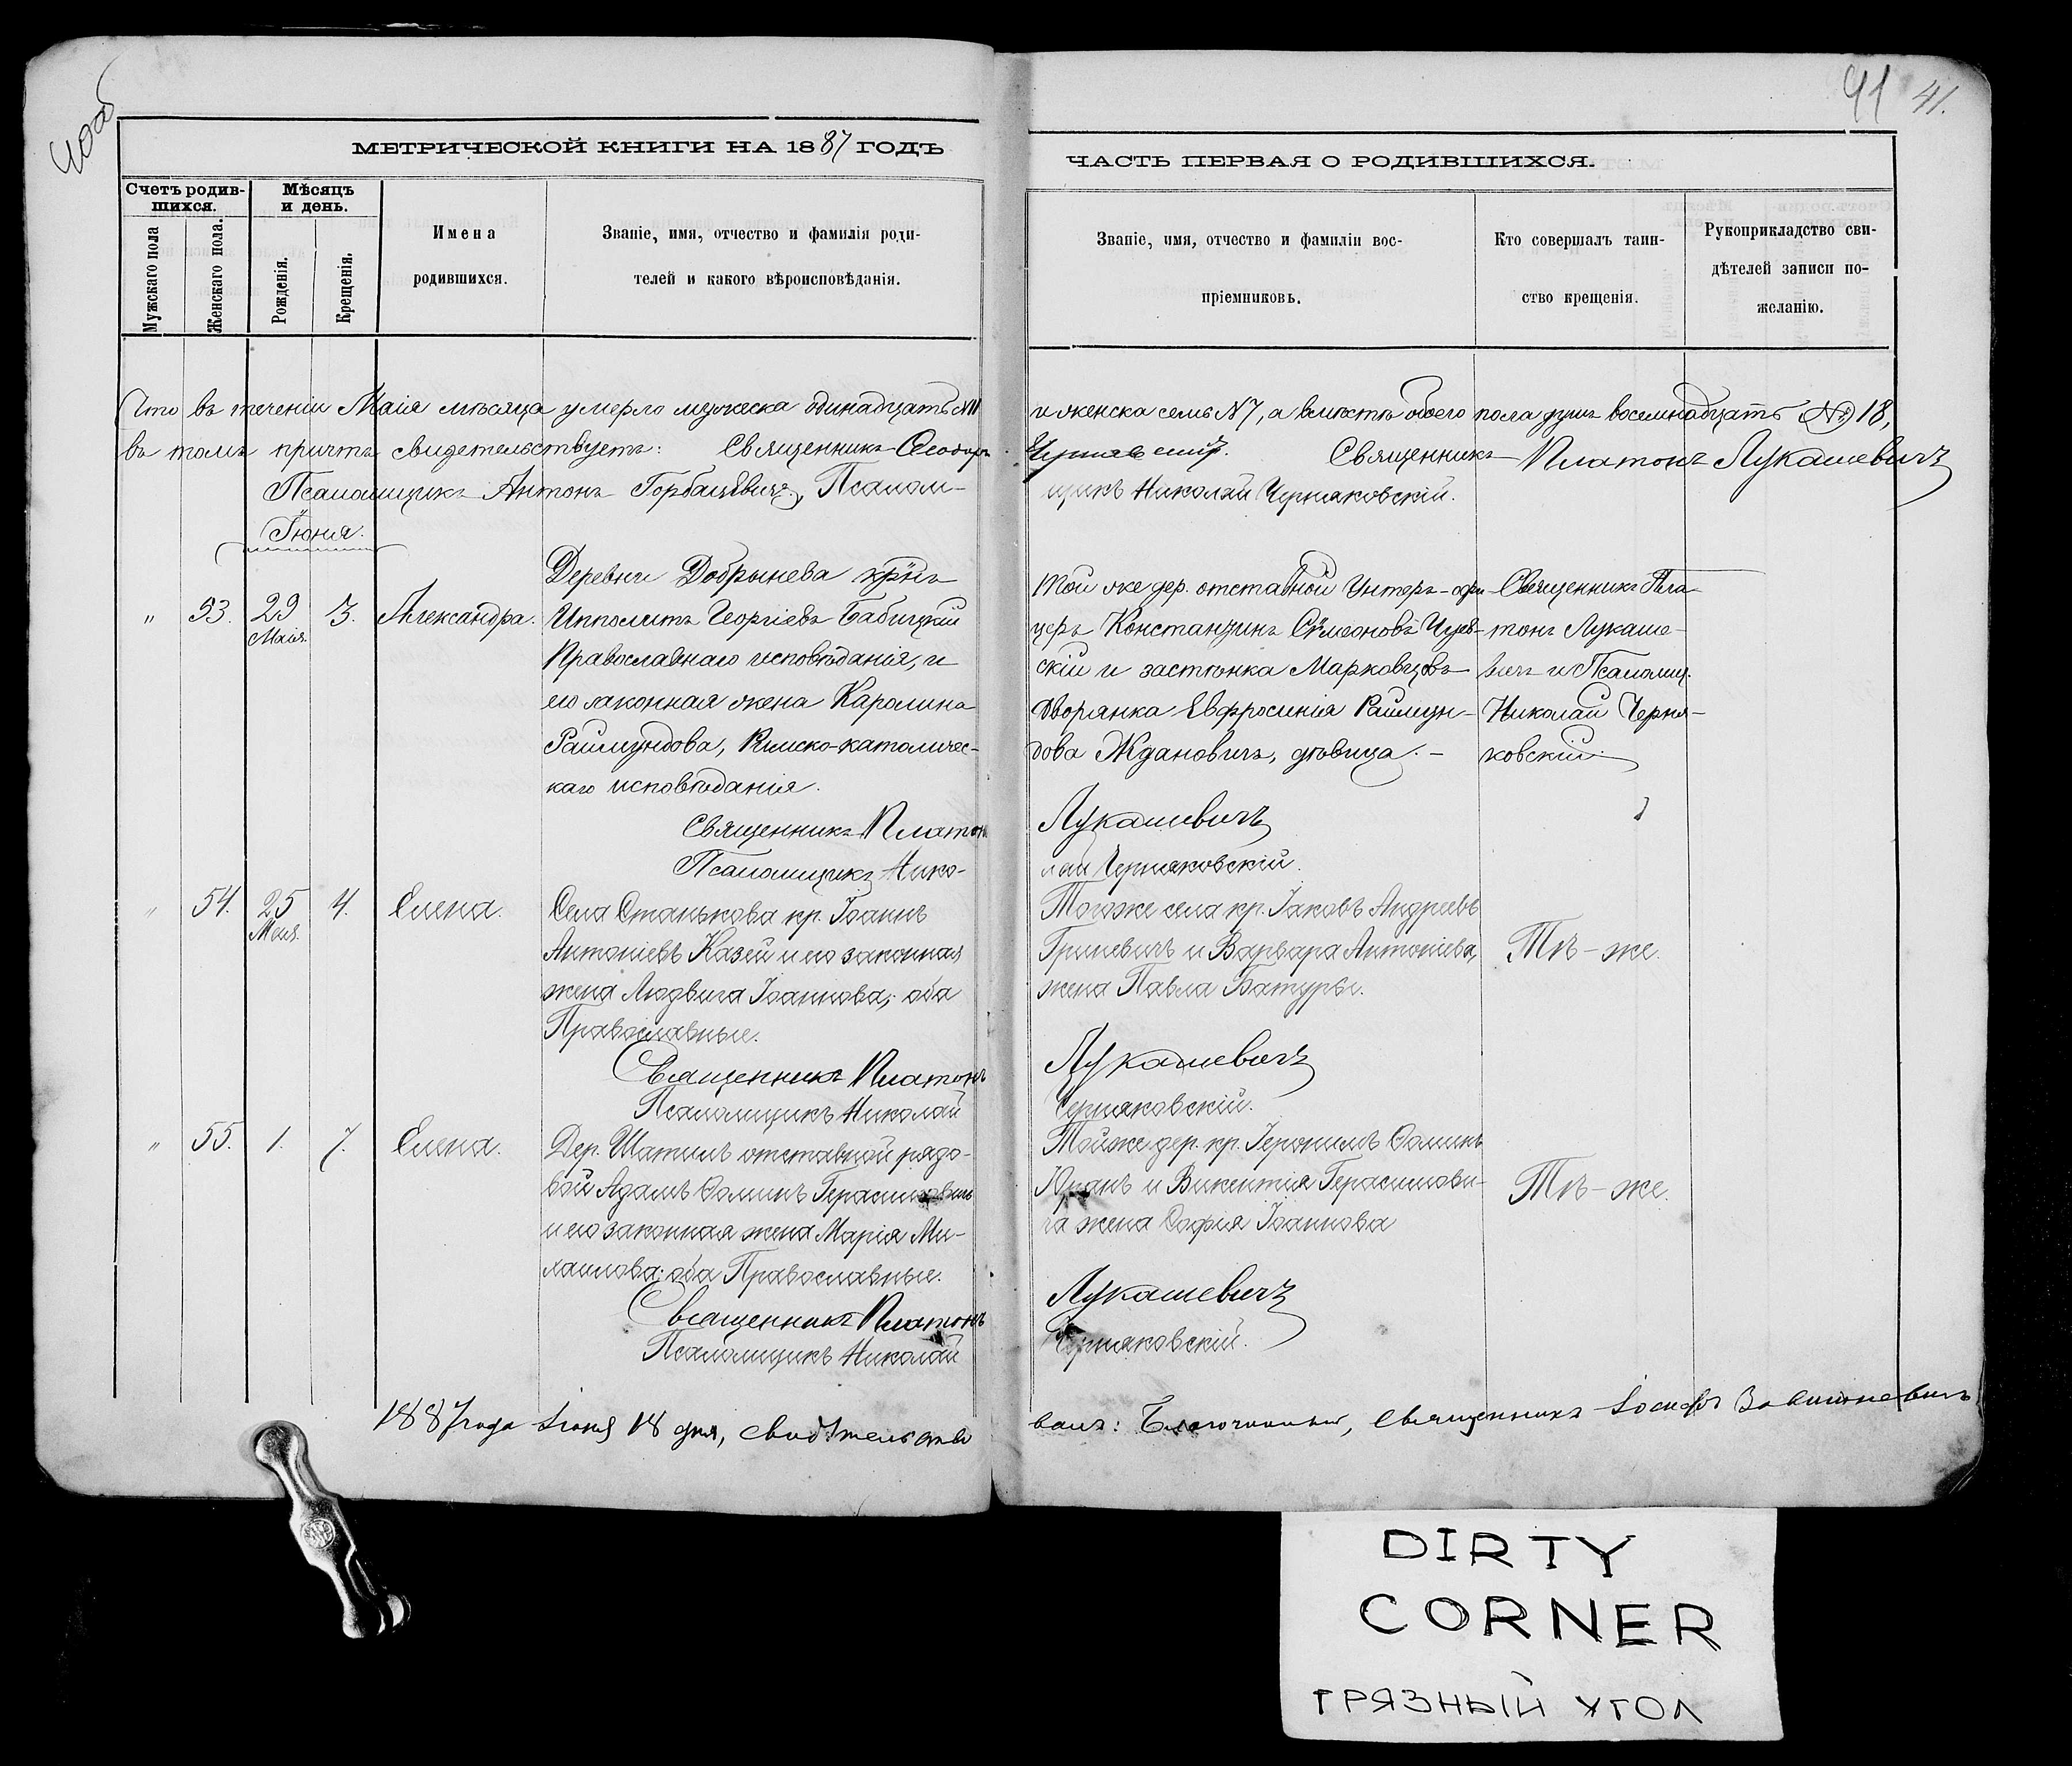 40об
МЕТРИЧЕСКОЙ КНИГИ НА 1887 ГОДЪ
Счетъ родив-
шихся.
Мѣсяцъ
и день.
Мужскаго пола
Женскаго пола.
Рожденія.
Крещенія.
Имена
родившихся.
Званіе, имя, отчество и фамилія роди-
телей и какого вѣроисповѣданія.
Что въ теченіи Маія мѣсяца умерло мужеска одинадцать №11
въ томъ причтъ свидетельствуетъ: Священникъ Ѳеодоръ
Псаломщикъ Антонъ Горбацевичъ, Псалом-
Іюня.
Деревни Добрынева
" 53. 29 3. Александра. Ипполитъ Георгіевъ Бабицкій
Маія.
Православнаго исповѣданія, и
его законная жена Каролина
Раймундова, Римско-католичес-
каго исповѣданія.
Священникъ Платонъ
Псаломщикъ Нико-
" 54. 25 4. Елена. Села Станькова кр. Іоаннъ
Маія.
Антоніевъ Казей и его законная
жена Людвига Іоаннова, оба
Православные.
Священникъ Платонъ
Псаломщикъ Николай
" 55. 1. 7. Елена. Дер. Шатилъ отставной рядо-
вой Адамъ Ѳоминъ Герасимовичъ
и его законная жена Марія Ми-
хаилова; оба Православные.
Священникъ Платонъ
Псаломщикъ Николай
1887 года Іюня 18 дня, свидѣтельство
41 41.
ЧАСТЬ ПЕРВАЯ О РОДИВШИХСЯ.
Званіе, имя, отчество и фамиліи вос-
пріемниковъ.
Кто совершалъ таин-
ство крещенія.
Рукоприкладство сви-
дѣтелей записи по-
желанію.
и женска семь №7, а вмѣстѣ обоего пола душъ восемнадцать №18,
Священникъ Платонъ Лукашевичъ
щикъ Николай Черняковскій.
Той же дер. отставной Унтеръ-офи- Священникъ Пла-
церъ Константинъ Сѵмеоновъ тонъ Лукаше-
скій и застѣнка Марковцовъ вичъ и Псаломщ.
дворянка Евфросинія Раймун- Николай Черня-
дова Ждановичъ, дѣвица. - ковскій.
Лукашевичъ
лай Черняковскій.
Тогоже села кр. Іаковъ Андреевъ
Гриневичъ и Варвара Антоніева, Тѣ-же.
жена Павла Батуры.
Лукашевичъ
Черняковскій.
Тойже дер. кр. Іеронимъ Ѳоминъ
и Викентія Герасимови- Тѣ-же.
ча жена Софія Іоаннова
Лукашевичъ
Черняковскій.
валъ: Благочинный, Священникъ Іосифъ
DIRTY
CORNER
ГРЯЗНЫЙ УГОЛ